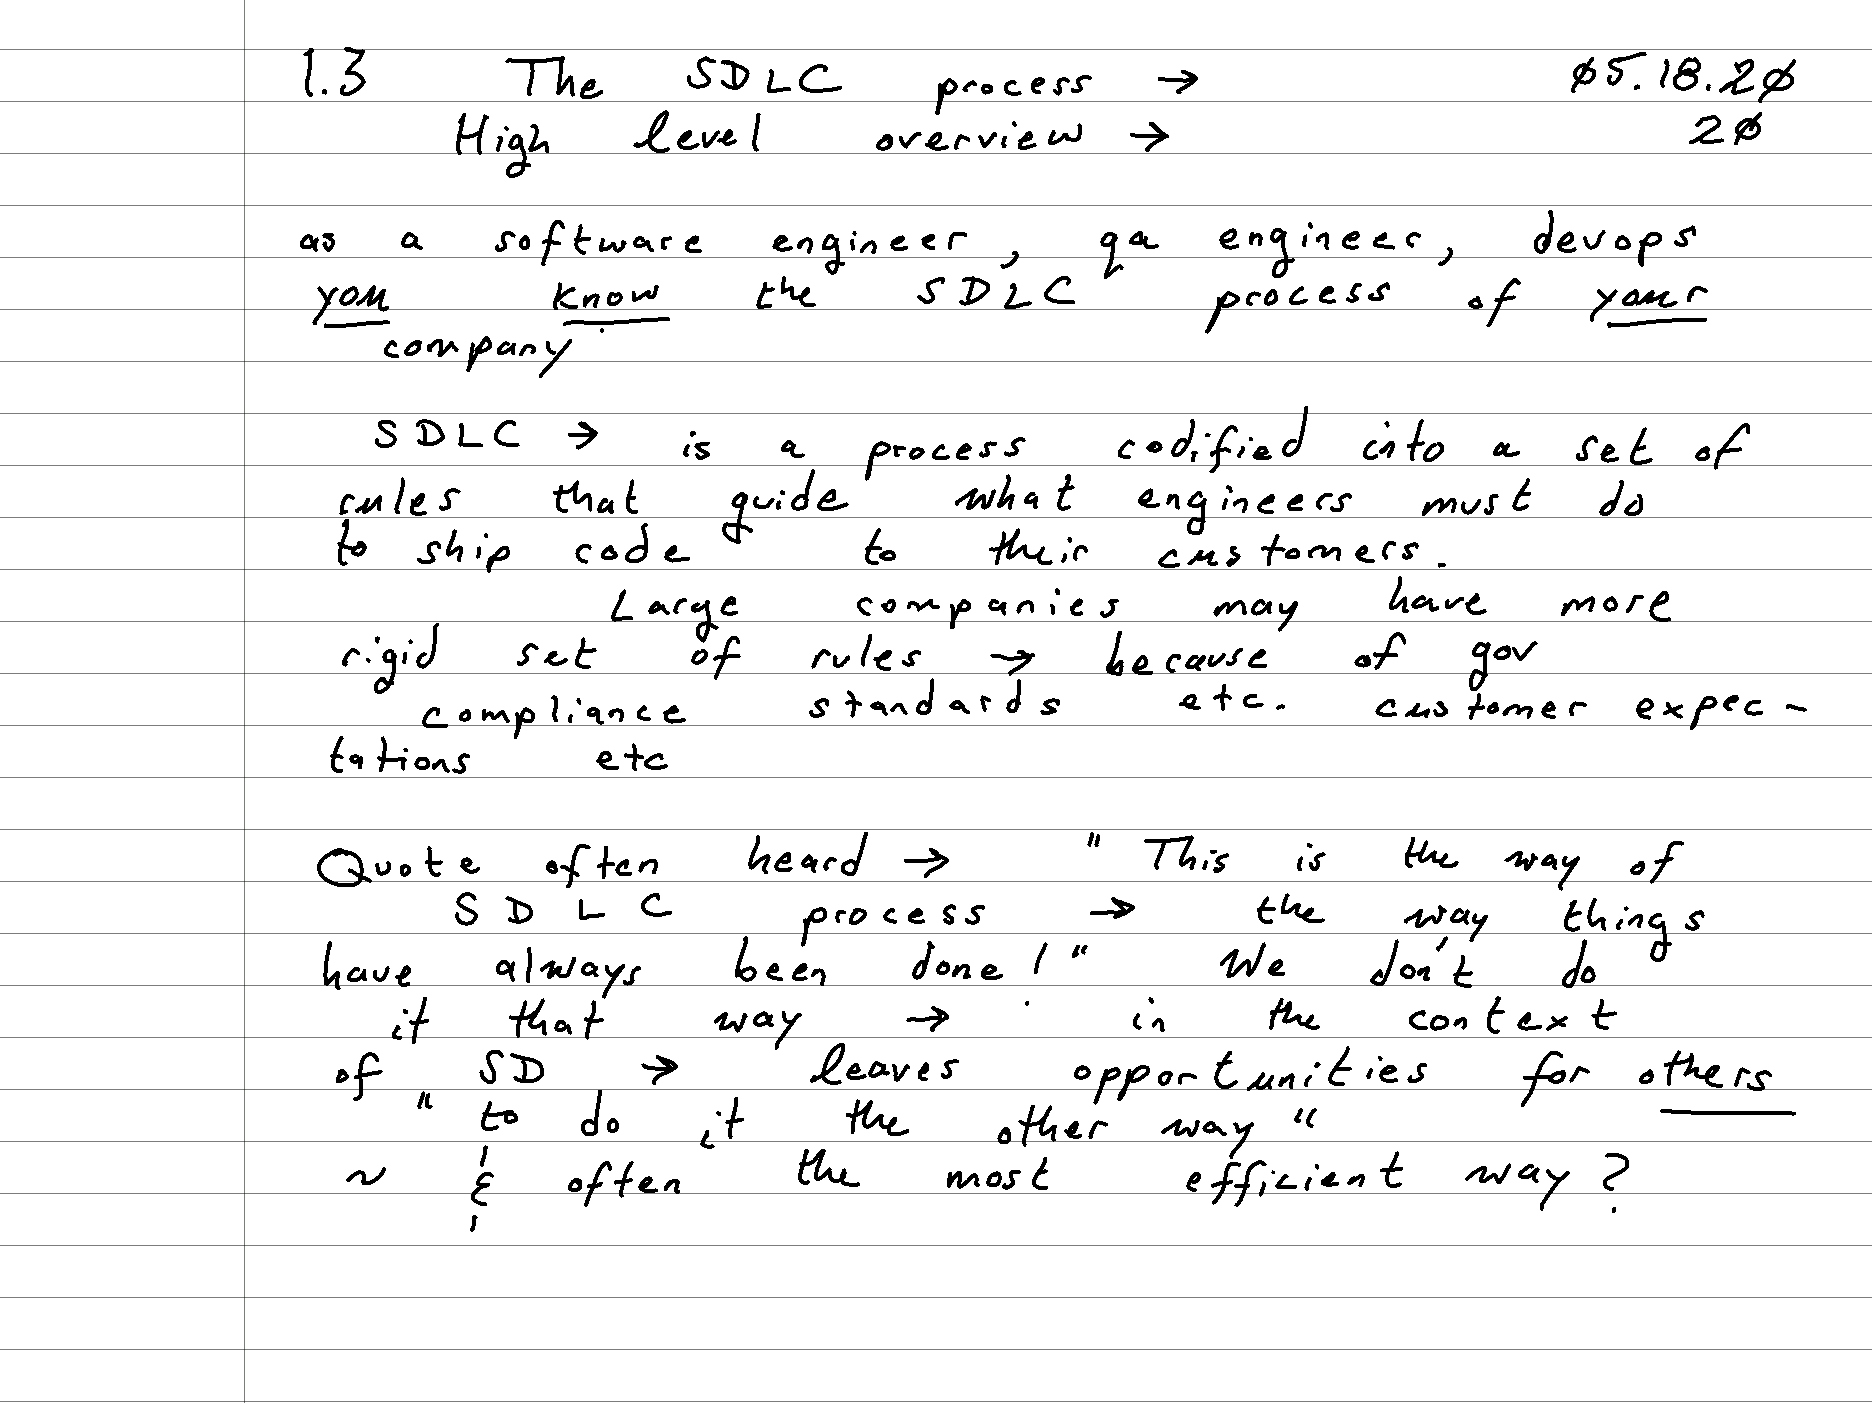 1.3 The SDLC process → 05.18.20
High level overview → 20
as a software engineer, qa engineer, devops
you know the SDLC process of your
company
SDLC → is a process codified into a set of
rules that guide what engineers must do
to ship code to their customers.
Large companies may have more
rigid set of rules → because of gov
compliance standards etc. customer expec-
tations etc
Quote often heard → "This is the way of
SDLC process → the way things
have always been done!" We don't do
it that way → in the context
of SD → leaves opportunities for others
"to do it the other way"
~ & often the most efficient way?